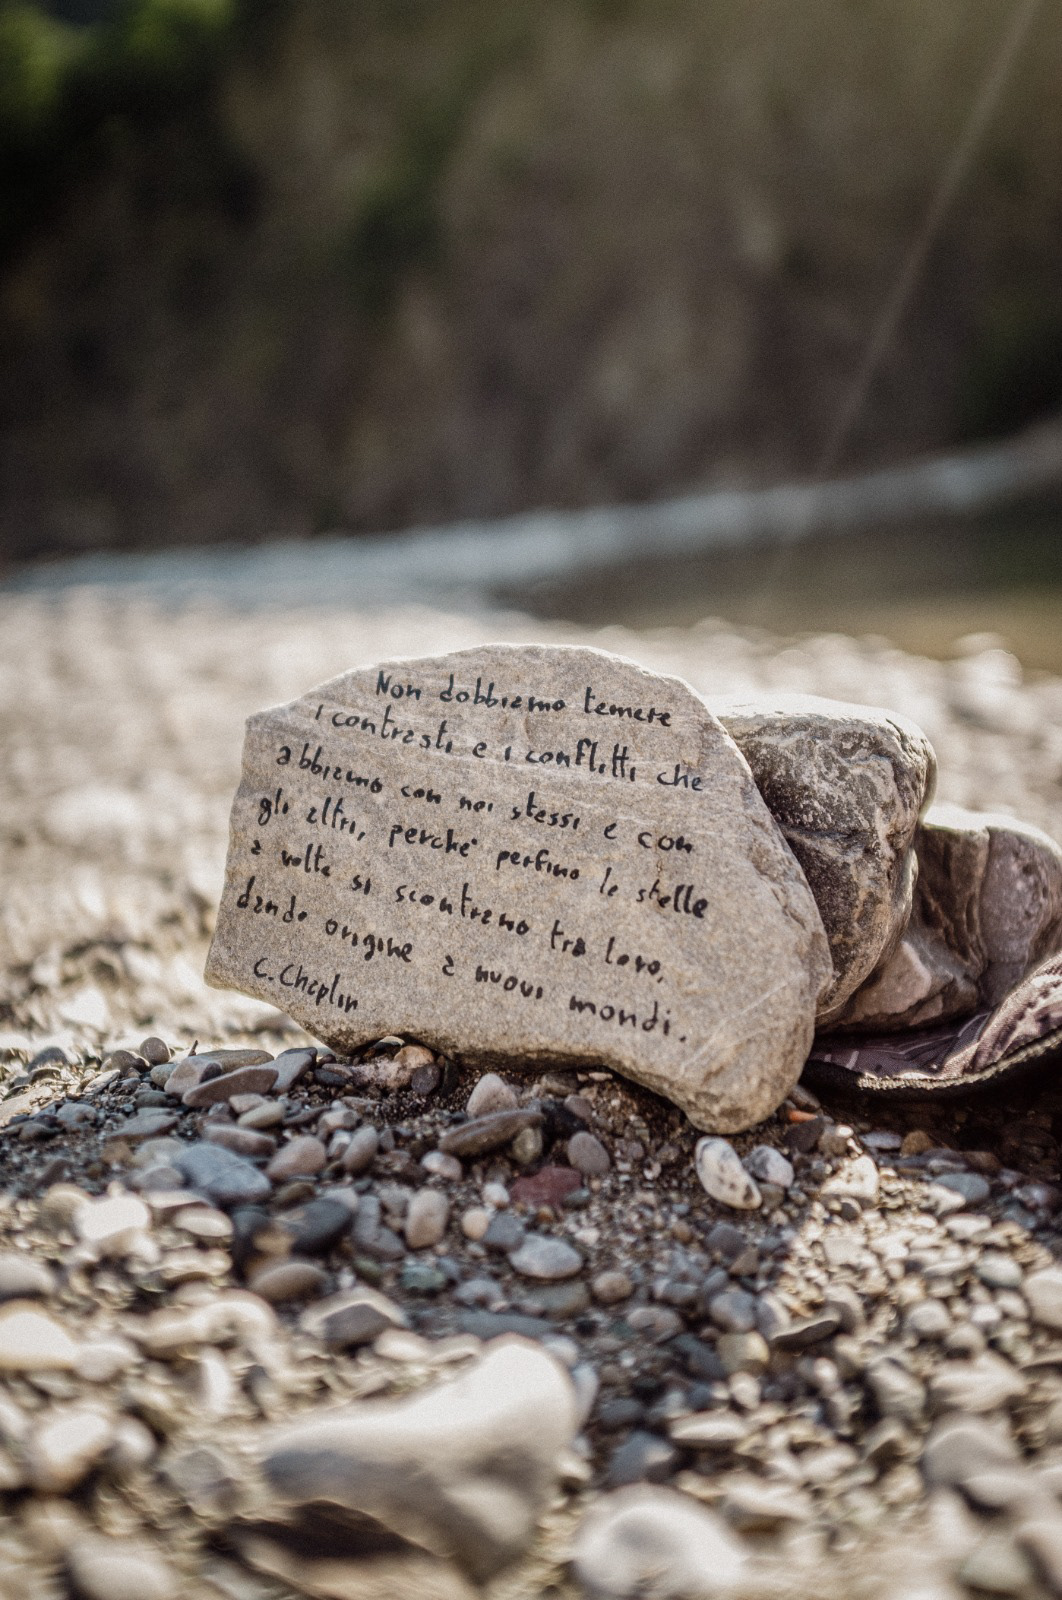 Non dobbiamo temere
i contrasti e i conflitti che
abbiamo con noi stessi e con
gli altri, perchè perfino le stelle
a volte si scontrano tra loro,
dando origine a nuovi mondi.
C. Chaplin